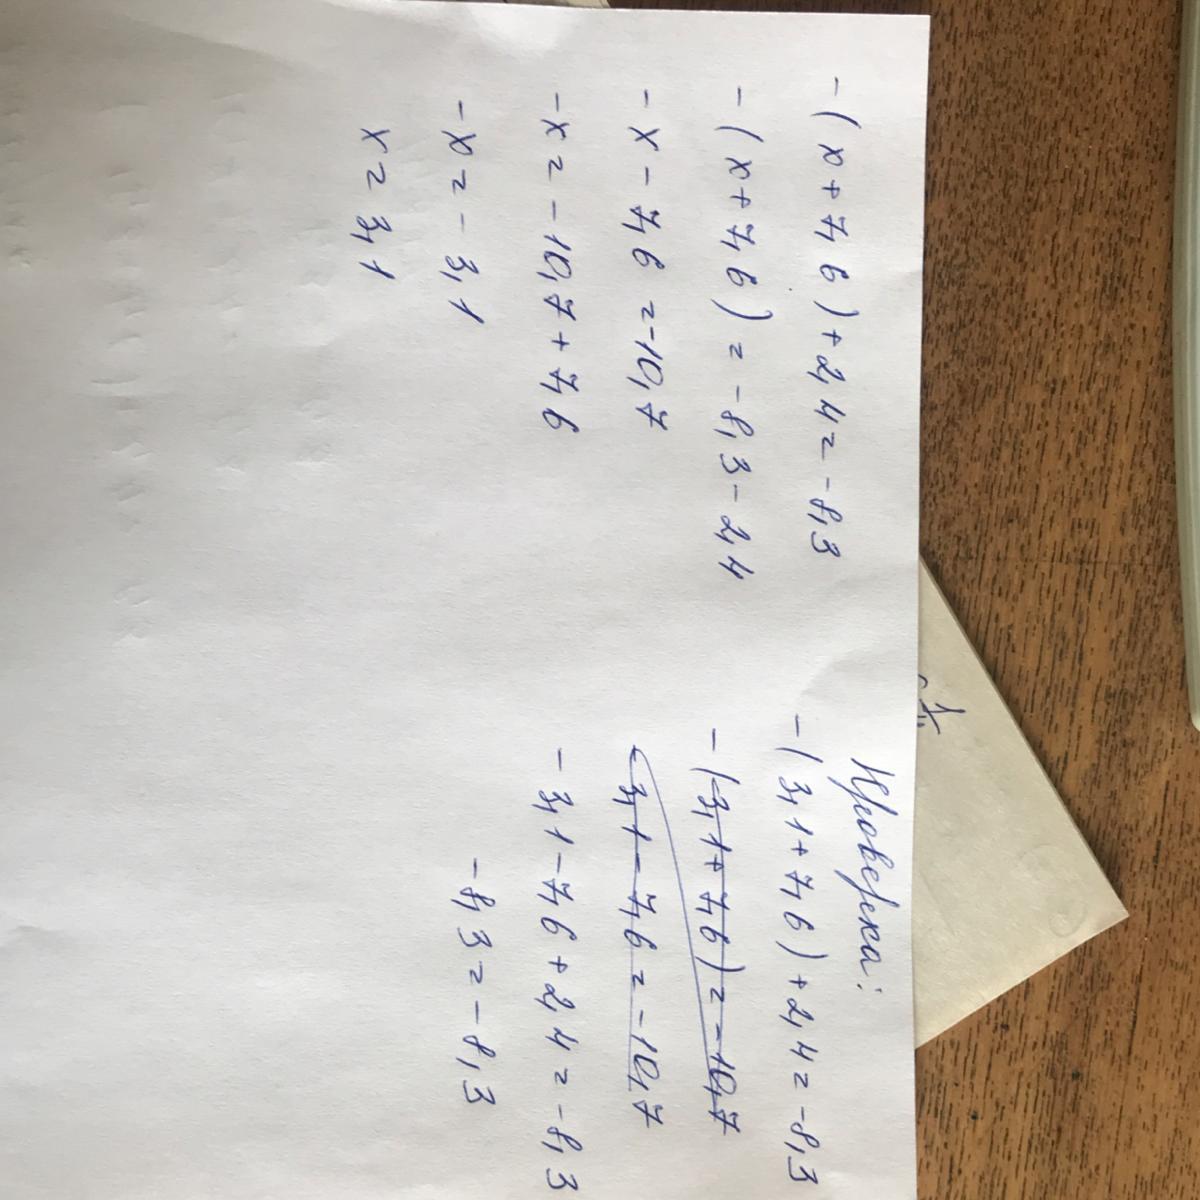 -(x+7,6)+2,4=-8,3
-(x+7,6)=-8,3-2,4
-x-7,6=-10,7
-x=-10,7+7,6
-x=-3,1
x=3,1
Проверка:
-(3,1+7,6)+2,4=-8,3
-(3,1+7,6)=-10,7
3,1-7,6=-10,7
-3,1-7,6+2,4=-8,3
-8,3=-8,3